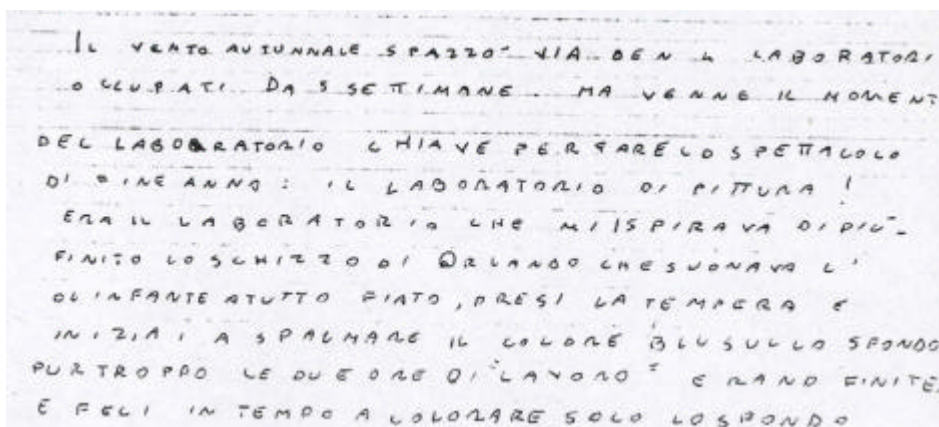 IL VENTO AUTUNNALE SPAZZO' VIA BEN 4 LABORATORI
OCCUPATI DA 5 SETTIMANE. MA VENNE IL MOMENT
DEL LABORATORIO CHIAVE PER FARE LO SPETTACOLO
DI FINE ANNO: IL LABORATORIO DI PITTURA!
ERA IL LABORATORIO CHE MI ISPIRAVA DI PIU'.
FINITO LO SCHIZZO DI ORLANDO CHE SUONAVA L'
OLINFANTE A TUTTO FIATO, PRESI LA TEMPERA E
INIZIAI A SPALMARE IL COLORE BLU SULLO SFONDO
PURTROPPO LE DUE ORE DI "LAVORO" ERANO FINITE
E FECI IN TEMPO A COLORARE SOLO LO SFONDO